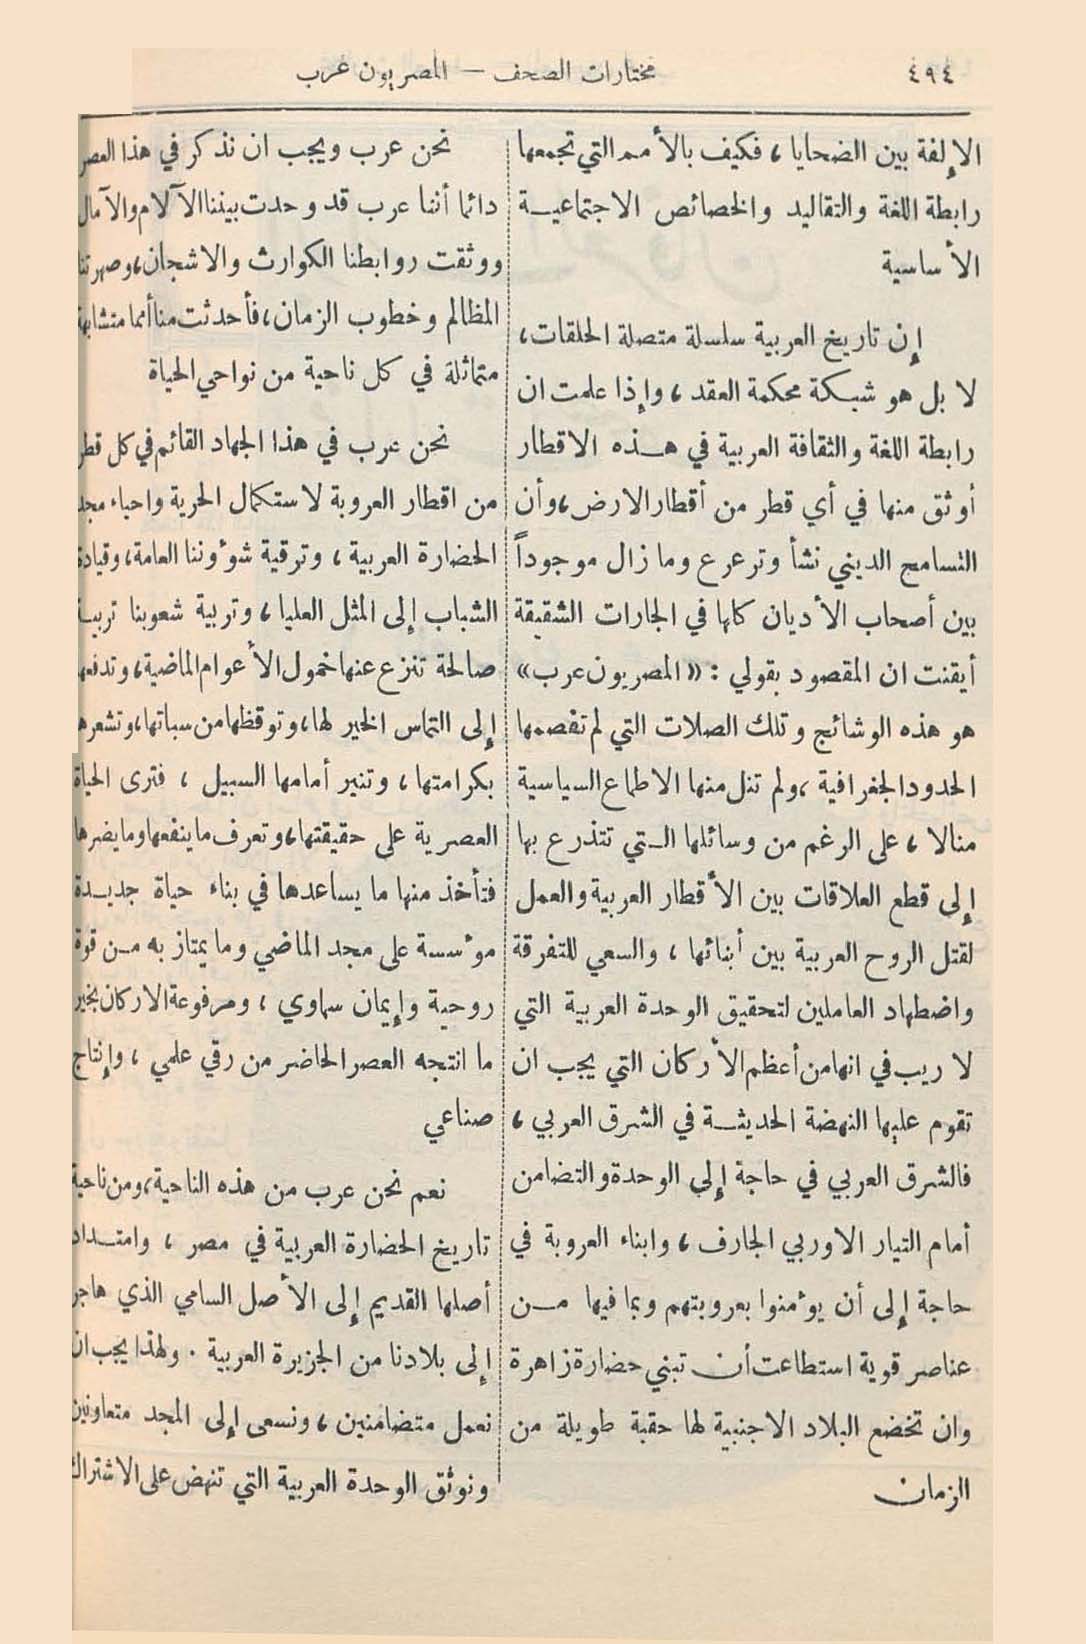 ٤٩٤
مختارات الصحف — المصريون عرب
الإلفة بين الضحايا، فكيف بالأمم التي تجمعها
رابطة اللغة والتقاليد والخصائص الاجتماعية
الأساسية
إن تاريخ العربية سلسلة متصلة الحلقات،
لا بل هو شبكة محكمة العقد، وإذا علمت ان
رابطة اللغة والثقافة العربية في هذه الاقطار
أوثق منها في أي قطر من أقطار الارض، وأن
التسامح الديني نشأ وترعرع وما زال موجوداً
بين أصحاب الأديان كلها في الجارات الشقيقة
أيقنت ان المقصود بقولي : «المصريون عرب»
هو هذه الوشائج وتلك الصلات التي لم تفصمها
الحدود الجغرافية، ولم تنل منها الاطماع السياسية
منالا، على الرغم من وسائلها التي تتذرع بها
إلى قطع العلاقات بين الأقطار العربية والعمل
لقتل الروح العربية بين أبنائها، والسعي للتفرقة
واضطهاد العاملين لتحقيق الوحدة العربية التي
لا ريب في انها من أعظم الأركان التي يجب ان
تقوم عليها النهضة الحديثة في الشرق العربي،
فالشرق العربي في حاجة إلى الوحدة والتضامن
أمام التيار الاوربي الجارف، وابناء العروبة في
حاجة إلى أن يؤمنوا بعروبتهم وبما فيها من
عناصر قوية استطاعت أن تبني حضارة زاهرة
وان تخضع البلاد الاجنبية لها حقبة طويلة من
الزمان
نحن عرب ويجب ان نذكر في هذا العصر
دائما أننا عرب قد وحدت بيننا الآلام والآمال
ووثقت روابطنا الكوارث والاشجان، وصهرتنا
المظالم وخطوب الزمان، فأحدثت منا أمما متشابهة
متماثلة في كل ناحية من نواحي الحياة
نحن عرب في هذا الجهاد القائم في كل قطر
من اقطار العروبة لاستكمال الحرية واحياء مجد
الحضارة العربية، وترقية شؤوننا العامة، وقيادة
الشباب إلى المثل العليا، وتربية شعوبنا تربية
صالحة تنزع عنها خمول الأعوام الماضية، وتدفعها
إلى التماس الخير لها، وتوقظها من سباتها، وتشعرها
بكرامتها، وتنير أمامها السبيل، فترى الحياة
العصرية على حقيقتها، وتعرف ما ينفعها وما يضرها
فتأخذ منها ما يساعدها في بناء حياة جديدة
مؤسسة على مجد الماضي وما يمتاز به من قوة
روحية وإيمان سماوي، ومرفوعة الاركان بخير
ما انتجه العصر الحاضر من رقي علمي، وإنتاج
صناعي
نعم نحن عرب من هذه الناحية، ومن ناحية
تاريخ الحضارة العربية في مصر، وامتداد
أصلها القديم إلى الأصل السامي الذي هاجر
إلى بلادنا من الجزيرة العربية . ولهذا يجب ان
نعمل متضامنين، ونسعى إلى المجد متعاونين
ونوثق الوحدة العربية التي تنهض على الاشتراك